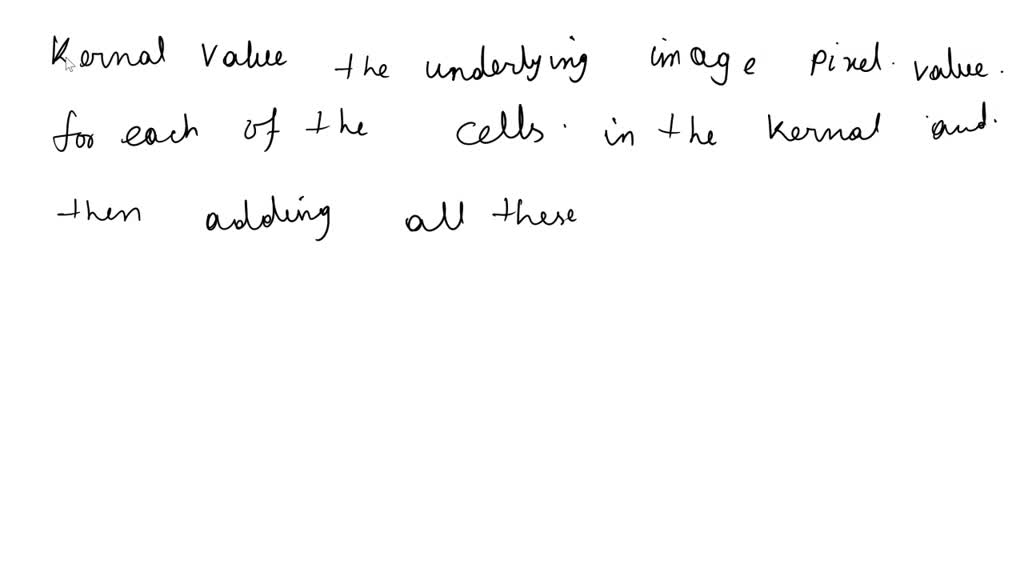 Kernal value the underlying image pixel. value.
for each of the cells. in the kernal and.
then adding all these